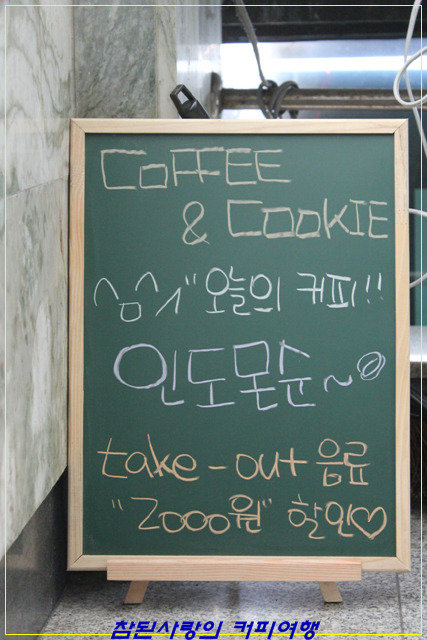 COFFEE
& COOKIE
^^ 오늘의 커피!!
인도몬순~
take-out 음료
"2000원" 할인♡
참된사랑의 커피여행